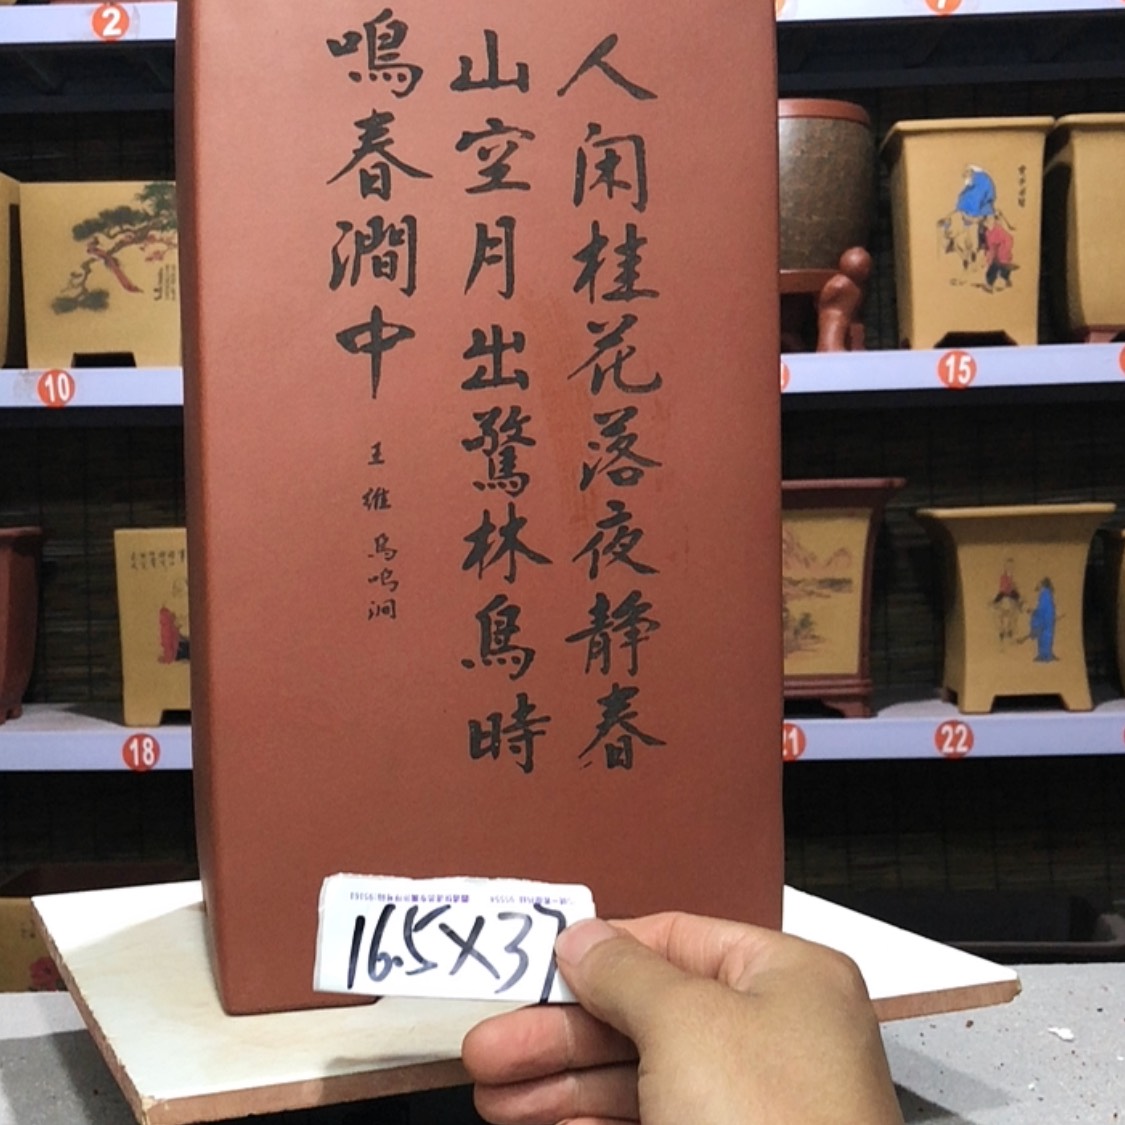 人闲桂花落夜静春
山空月出驚林鳥時
鳴春澗中
王維 鳥鳴涧
16.5X37
2
10
15
18
21
22